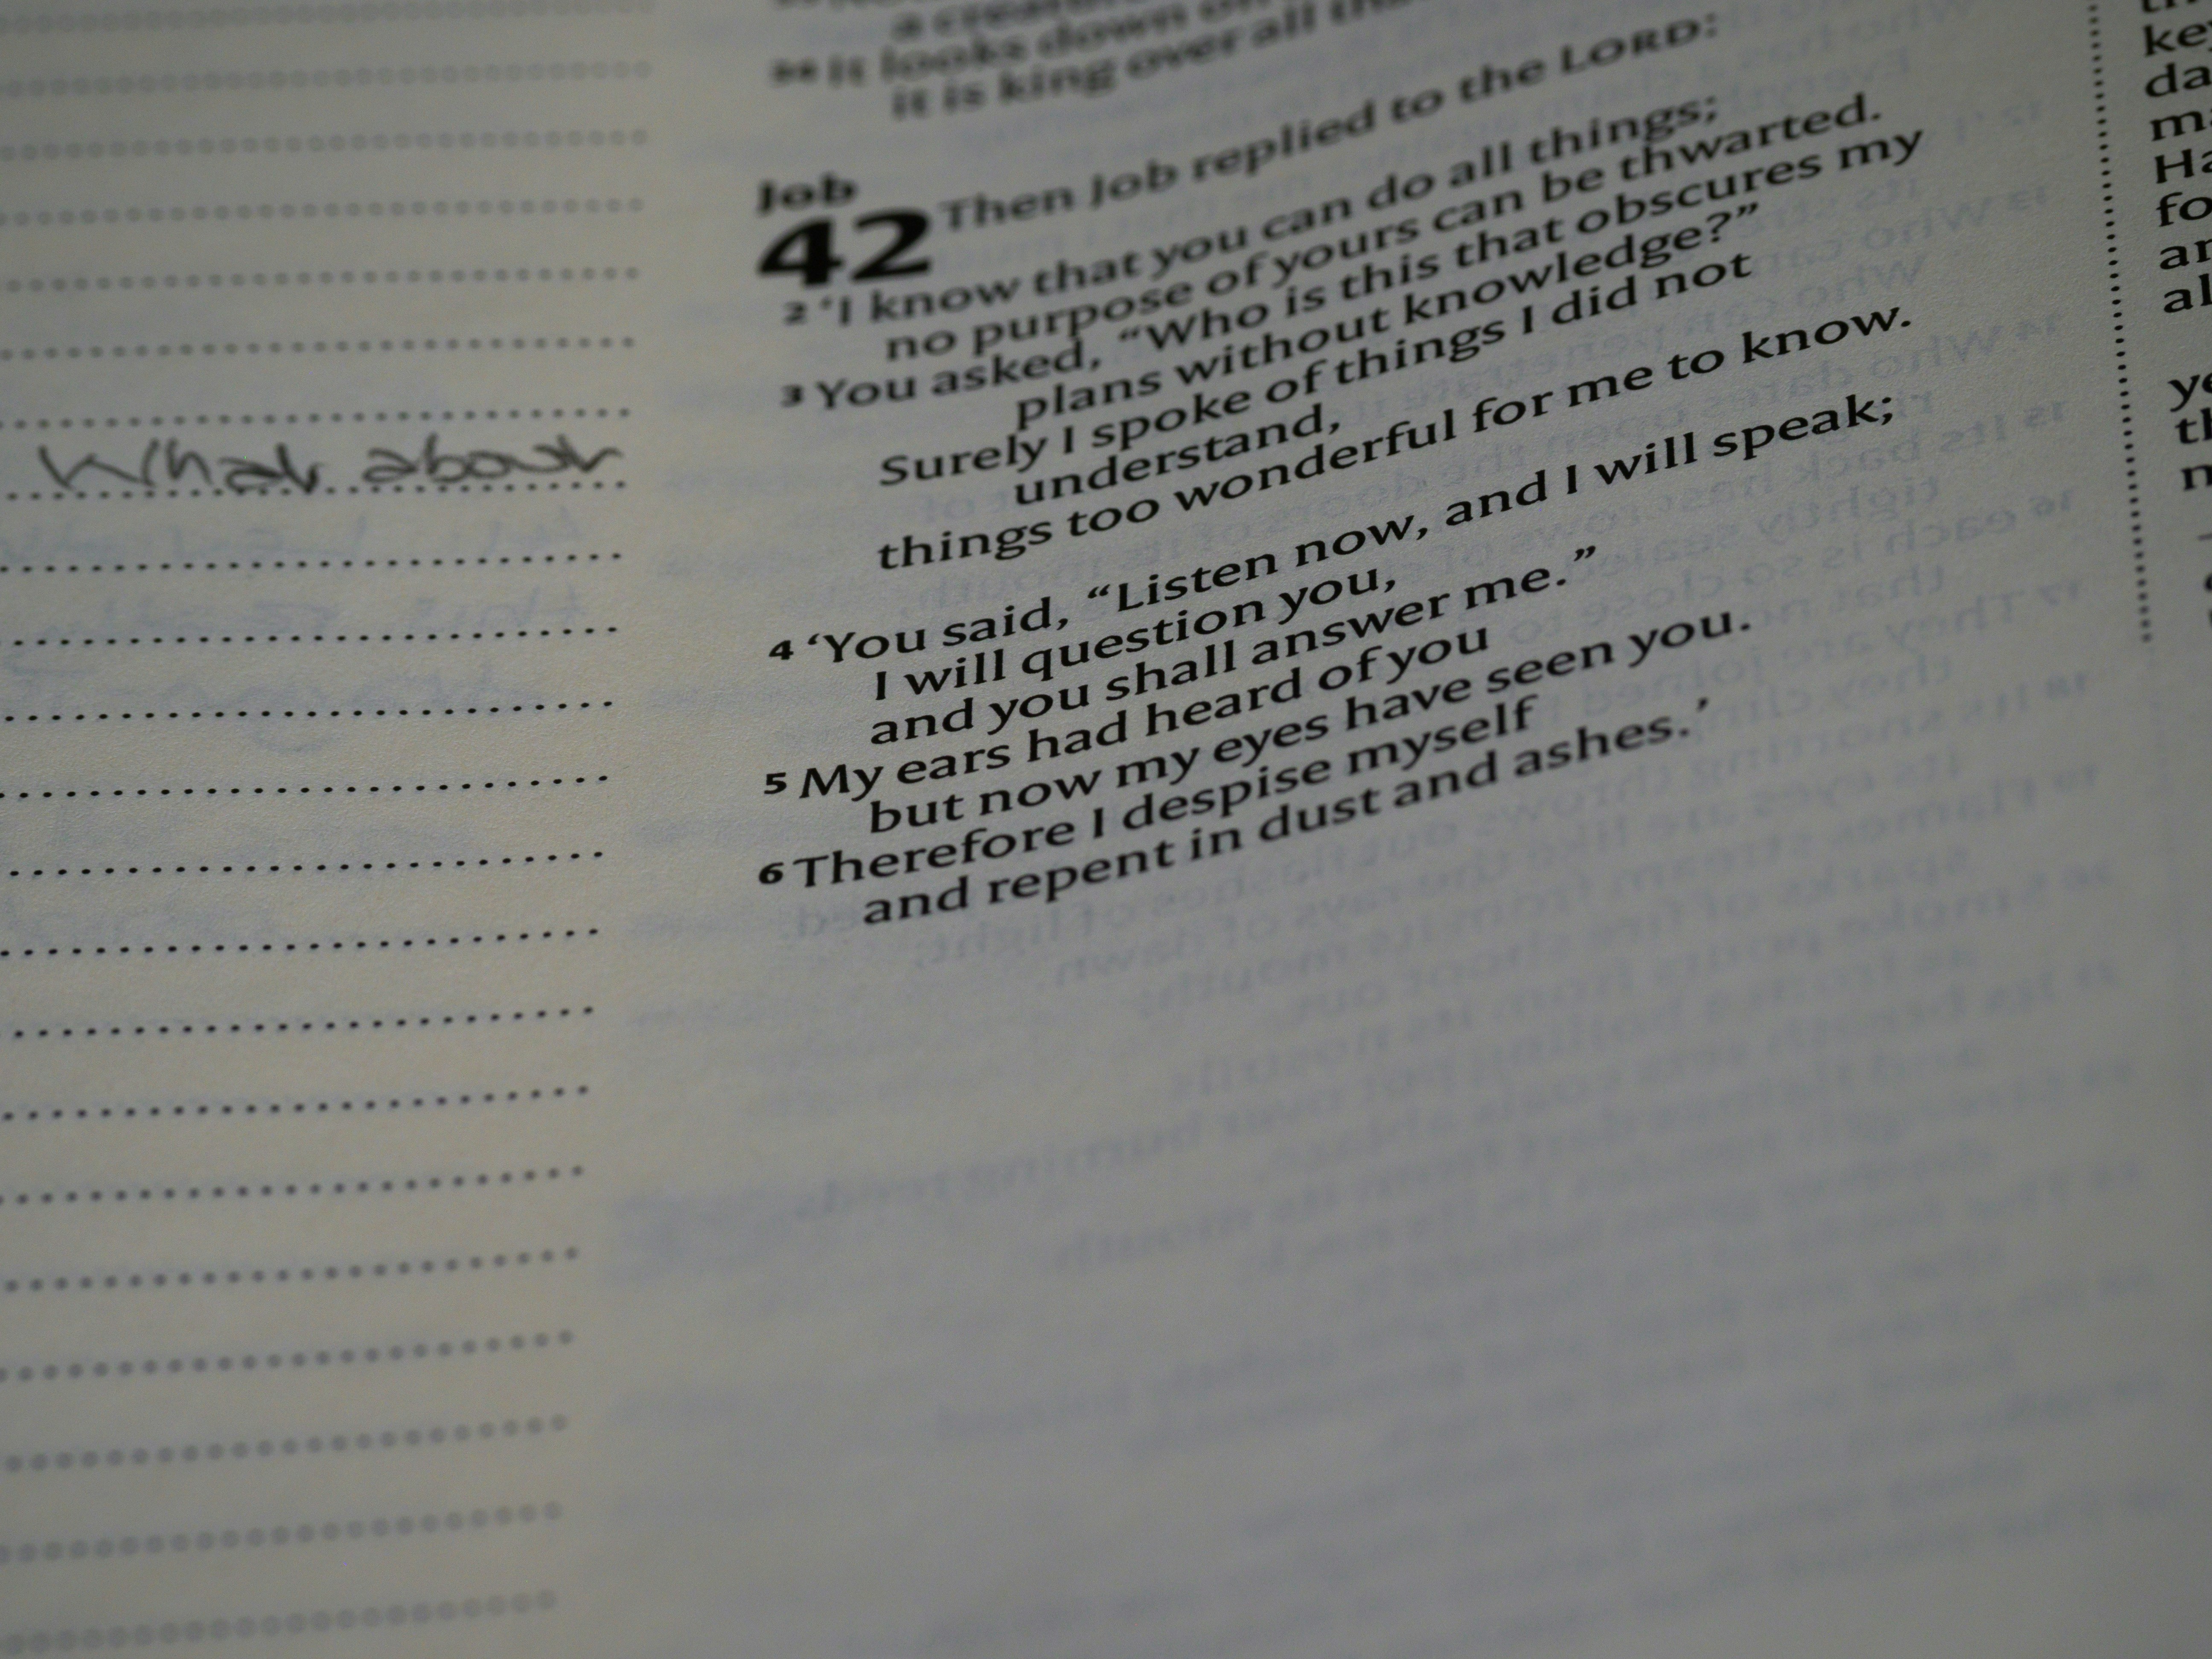 What about
a
it looks down on
it is king over all
Job
42 Then Job replied to the LORD:
2 ‘I know that you can do all things;
no purpose of yours can be thwarted.
3 You asked, “Who is this that obscures my
plans without knowledge?”
Surely I spoke of things I did not
understand,
things too wonderful for me to know.
4 ‘You said, “Listen now, and I will speak;
I will question you,
and you shall answer me.”
5 My ears had heard of you
but now my eyes have seen you.
6 Therefore I despise myself
and repent in dust and ashes.’